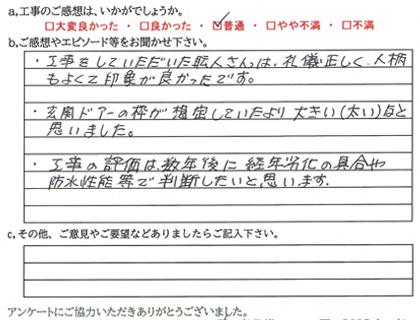 a.工事のご感想は、いかがでしょうか。
□大変良かった ・ □良かった ・ ☑普通 ・ □やや不満 ・ □不満
b.ご感想やエピソード等をお聞かせ下さい。
・工事をしていただいた職人さんは、礼儀正しく、人柄
もよくて印象が良かったです。
・玄関ドアーの枠が想定していたより大きい(太い)なと
思いました。
・工事の評価は、数年後に経年劣化の具合や
防水性能等で判断したいと思います。
c.その他、ご意見やご要望などありましたらご記入下さい。
アンケートにご協力いただきありがとうございました。